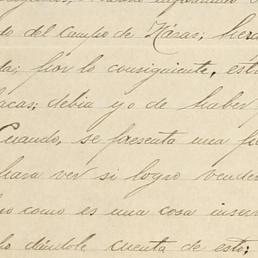 do del Campo de Kávas; hera
da; por lo consiguiente, est
lacas; debia yo de haber
Cuando, se presenta una f
para ver si logro vende
no como es una cosa inser
ho diéndole cuenta de esto;